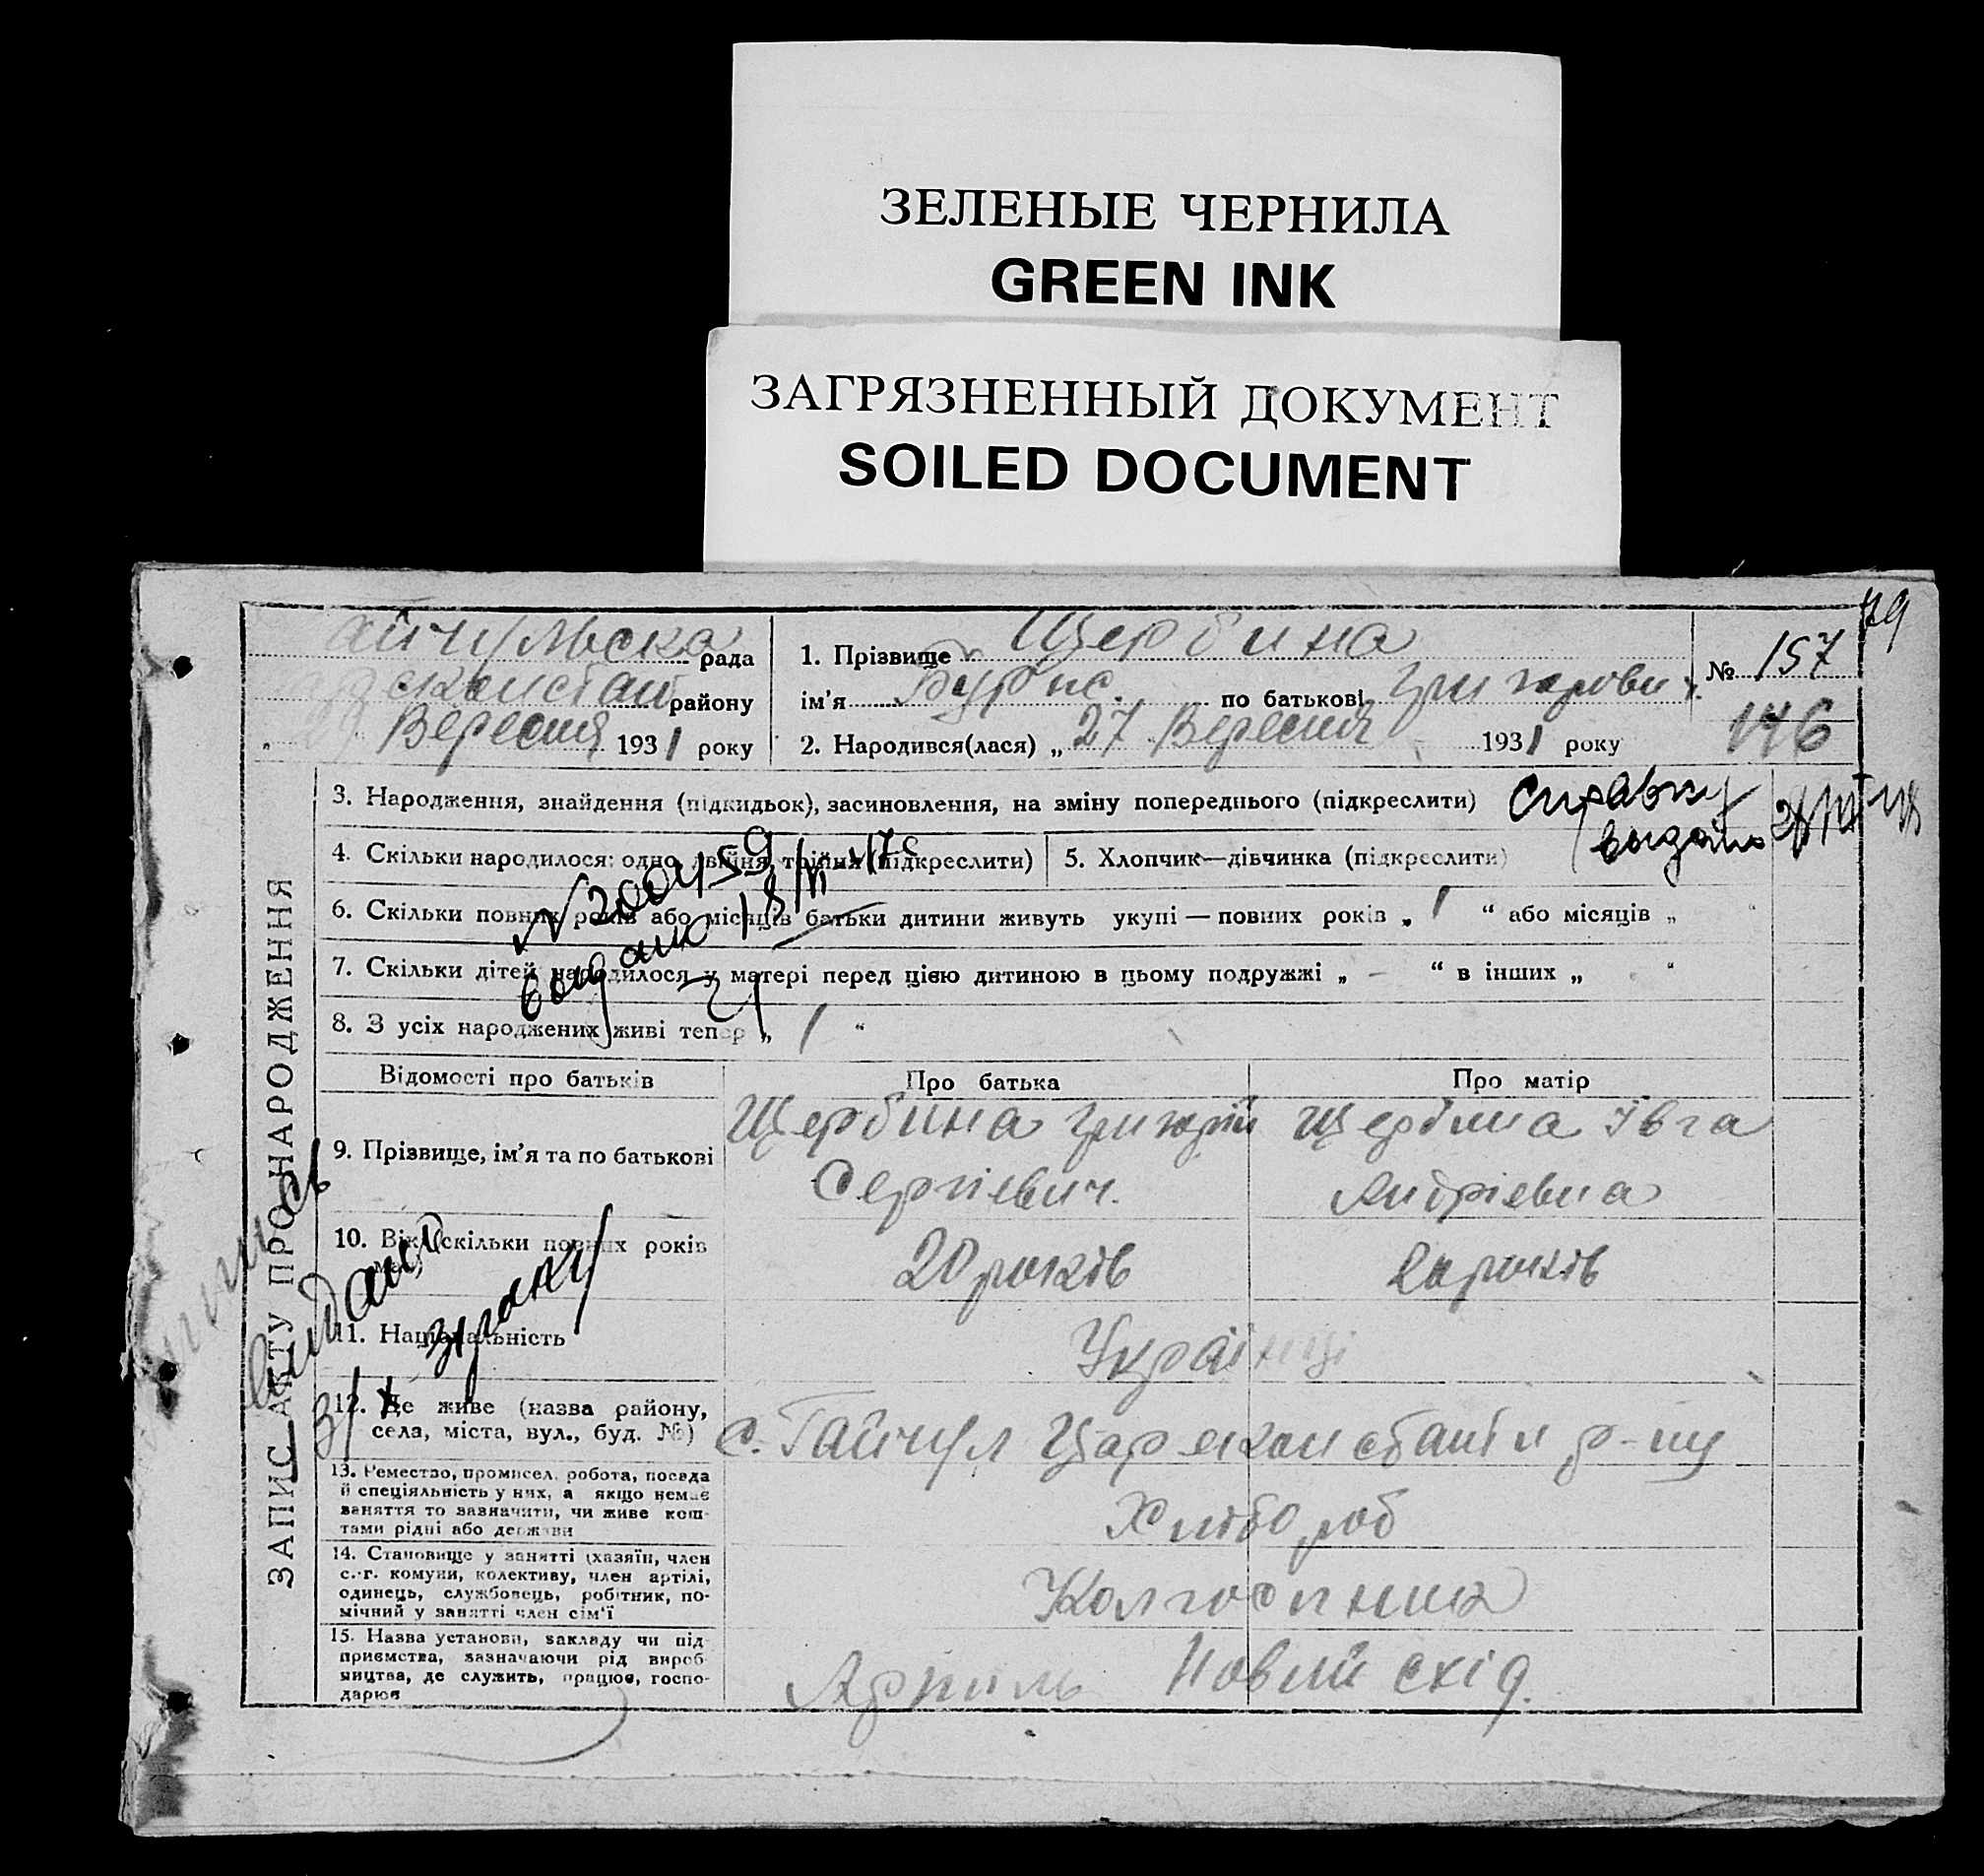 ЗЕЛЕНЫЕ ЧЕРНИЛА
GREEN INK
ЗАГРЯЗНЕННЫЙ ДОКУМЕНТ
SOILED DOCUMENT
79
айчульска рада
района
29 Вересня 1931 року
1. Прізвище Щербина
ім'я по батькові Григорович
2. Народився(лася) „ 27 Вересня 1931 року
№ 157
146
ЗАПИС АКТУ ПРО НАРОДЖЕННЯ
3. Народження, знайдення (підкидьок), засиновлення, на зміну попереднього (підкреслити)
Справку
выдано
4. Скільки народилося: одно, двійня, трійня (підкреслити)
5. Хлопчик—дівчинка (підкреслити)
6. Скільки повних років або місяців батьки дитини живуть укупі — повних років „ 1 “ або місяців „ “
7. Скільки дітей народилося у матері перед цією дитиною в цьому подружжі „ - “ в інших „ “
8. З усіх народжених живі тепер „ 1 “
Відомості про батьків
Про батька
Про матір
9. Прізвище, ім'я та по батькові
Щербина Григорій
Сергієвич.
Щербина Івга
Андрієвна
10. Вік (скільки повних років
має)
20 років
20 років
11. Національність
Українці
12. Де живе (назва району,
села, міста, вул., буд. №)
с. Гайчул Царекконстант р-ну
13. Ремество, промисел, робота, посада
й спеціяльність у них, а якщо немає
заняття то зазначити, чи живе кош-
тами рідні або держави
Хлібороб
14. Становище у занятті (хазяїн, член
с.-г. комуни, колективу, член артілі,
одинець, службовець, робітник, по-
мічний у занятті член сім'ї
Колгоспник
15. Назва установи, закладу чи під-
приємства, зазначаючи рід вироб-
ництва, де служить, працює, госпо-
дарює
Артиль Новий схід.
выдано